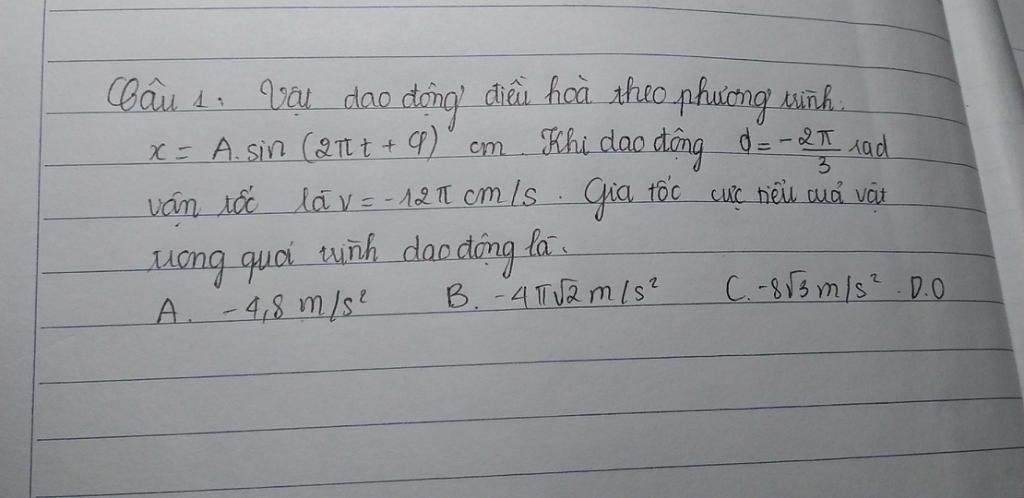 Câu 1. Vật dao động điều hoà theo phương trình.
x = A.sin (2πt + φ) cm. Khi dao động d = -2π/3 rad
vận tốc là v = -12π cm/s. Gia tốc cực tiểu của vật
trong quá trình dao động là.
A. -4,8 m/s² B. -4π√2 m/s² C. -8√3 m/s². D.0